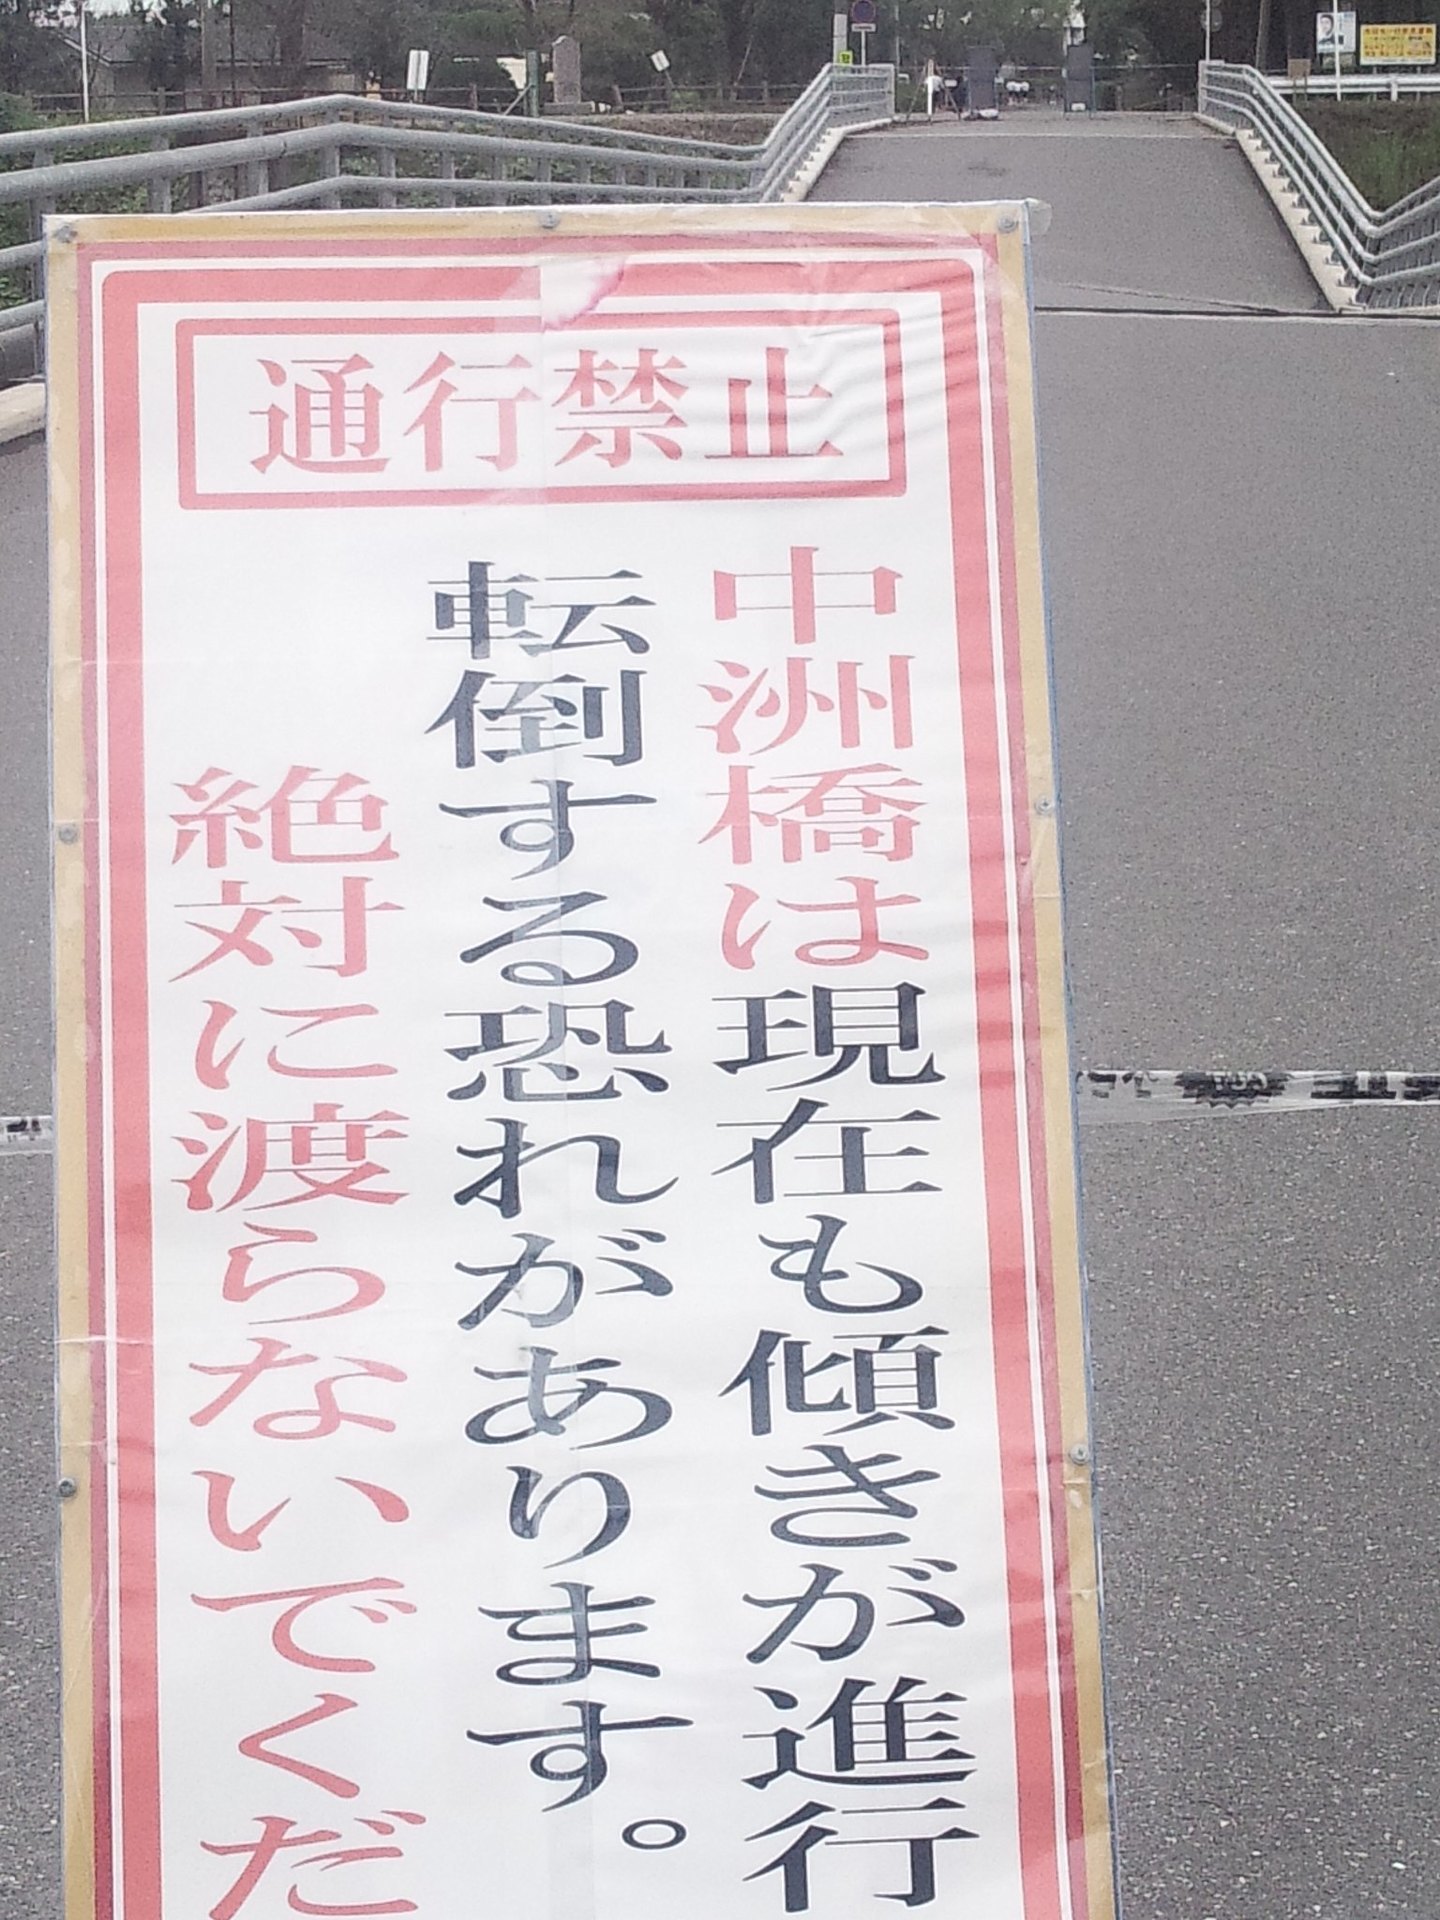 通行禁止
中洲橋は現在も傾きが進行
転倒する恐れがあります。
絶対に渡らないでくだ